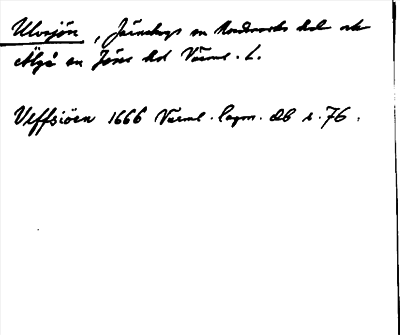 Ulvsjön, Järnskogs sn Nordmarks hd och
Älgå sn Jösse hd Värml. L.
Ulffsiöen 1666 Värml. lagm. db s. 76.